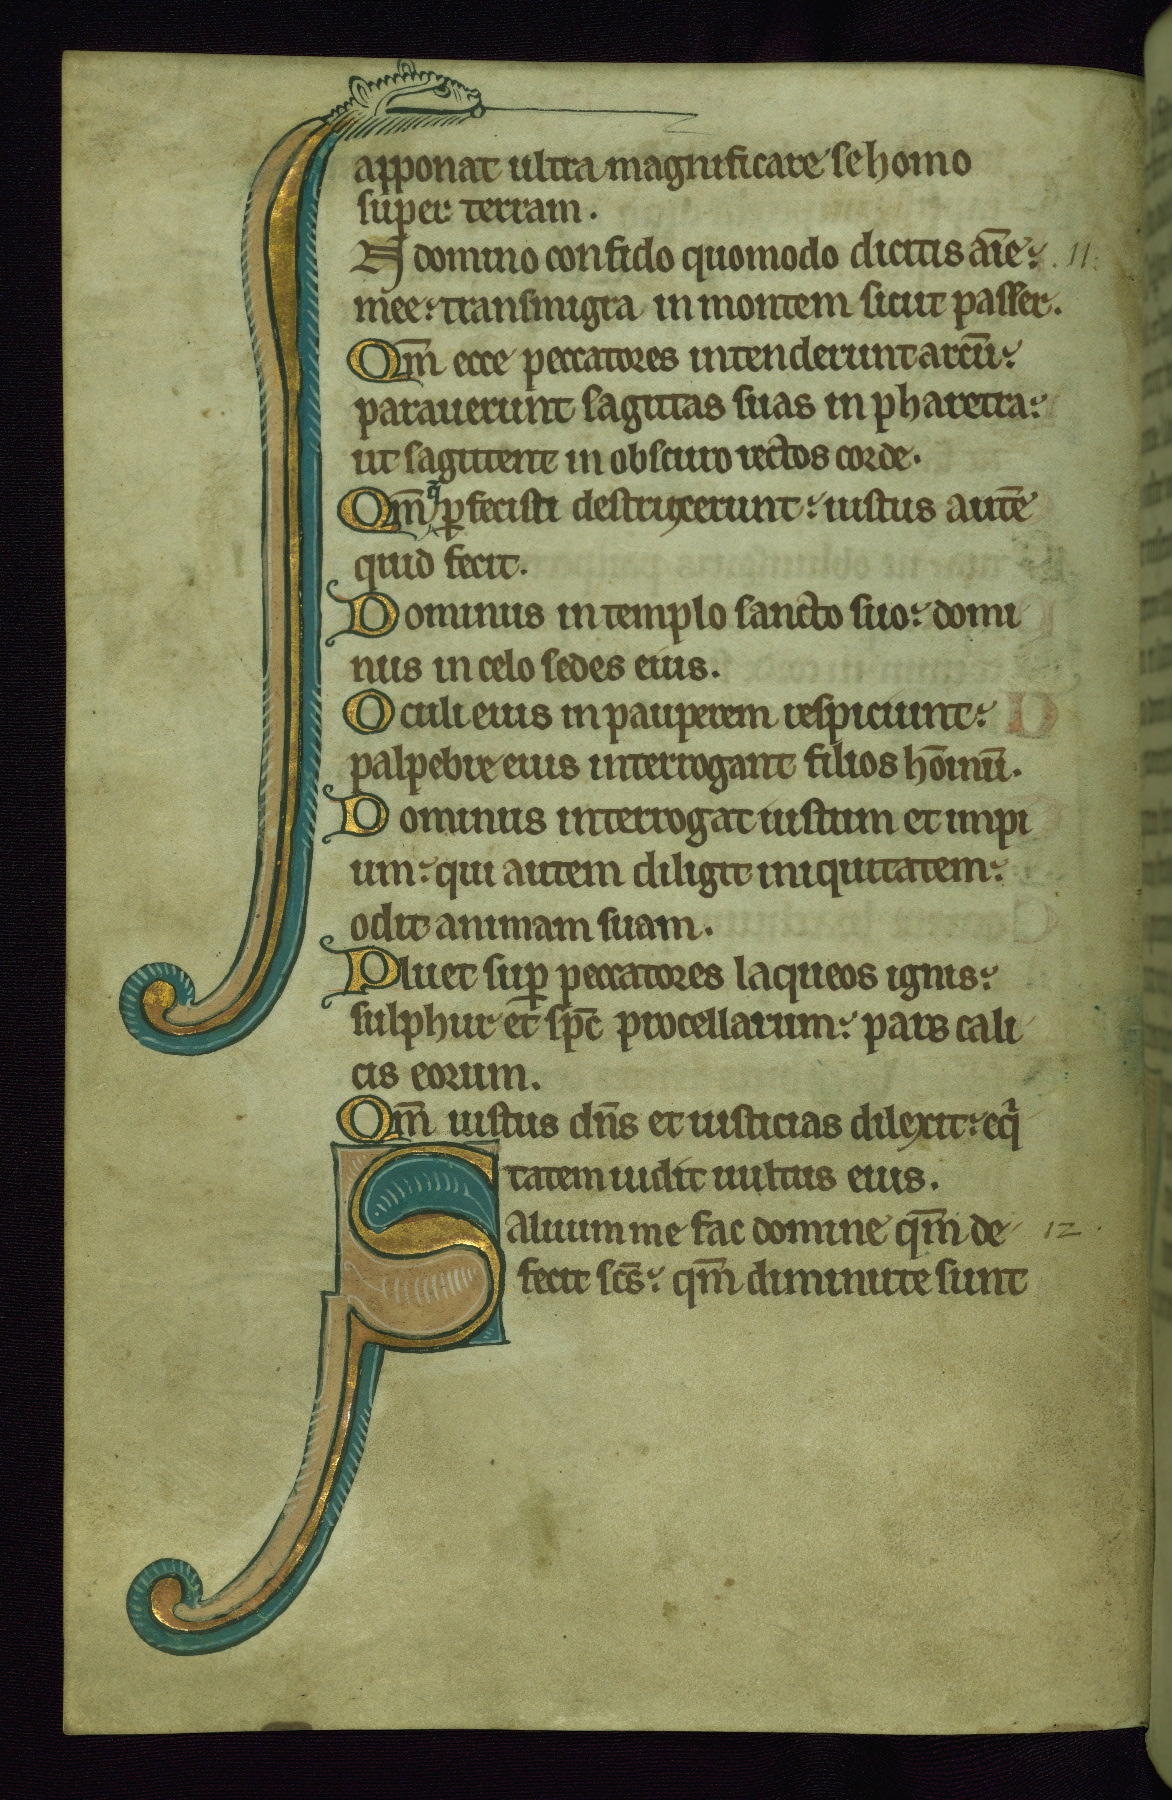 apponat ultra magnificare se homo
super terram.
N domino confido quomodo dicitis aīe: 11:
mee: transmigra in montem sicut passer.
Qm̄ ecce peccatores intenderunt arcū:
parauerunt sagittas suas in pharetra:
ut sagittent in obscuro rectos corde.
Qm̄ q̄ ꝑfecisti destruxerunt: iustus autē
quid fecit.
Dominus in templo sancto suo: domi
nus in celo sedes eius.
Oculi eius in pauperem respiciunt:
palpebre eius interrogant filios hōinū.
Dominus interrogat iustum et impi
um: qui autem diligit iniquitatem:
odit animam suam.
Pluet suꝑ peccatores laqueos ignis:
sulphur et sp̄c procellarum: pars cali
cis eorum.
Qm̄ iustus dn̄s et iusticias dilexit: eq̇
tatem uidit uultus eius.
Saluum me fac domine qm̄ de 12.
fecit sc̄s: qm̄ diminute sunt